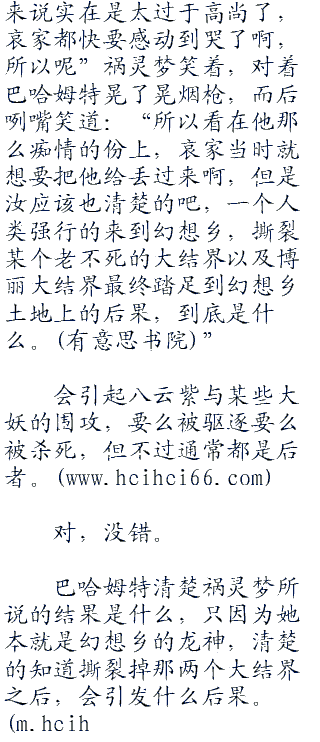 来说实在是太过于高尚了，
哀家都快要感动到哭了啊，
所以呢”祸灵梦笑着，对着
巴哈姆特晃了晃烟枪，而后
咧嘴笑道：“所以看在他那
么痴情的份上，哀家当时就
想要把他给丢过来啊，但是
汝应该也清楚的吧，一个人
类强行的来到幻想乡，撕裂
某个老不死的大结界以及博
丽大结界最终踏足到幻想乡
土地上的后果，到底是什
么。(有意思书院)”
会引起八云紫与某些大
妖的围攻，要么被驱逐要么
被杀死，但不过通常都是后
者。(www.hcihci66.com)
对，没错。
巴哈姆特清楚祸灵梦所
说的结果是什么，只因为她
本就是幻想乡的龙神，清楚
的知道撕裂掉那两个大结界
之后，会引发什么后果。
(m.hcih